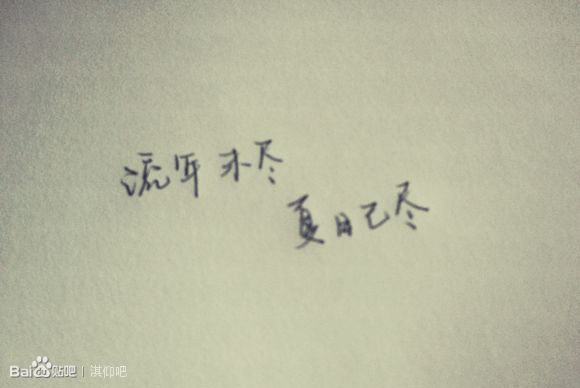 流年未尽
夏日已尽
Bai贴吧 | 淇仰吧